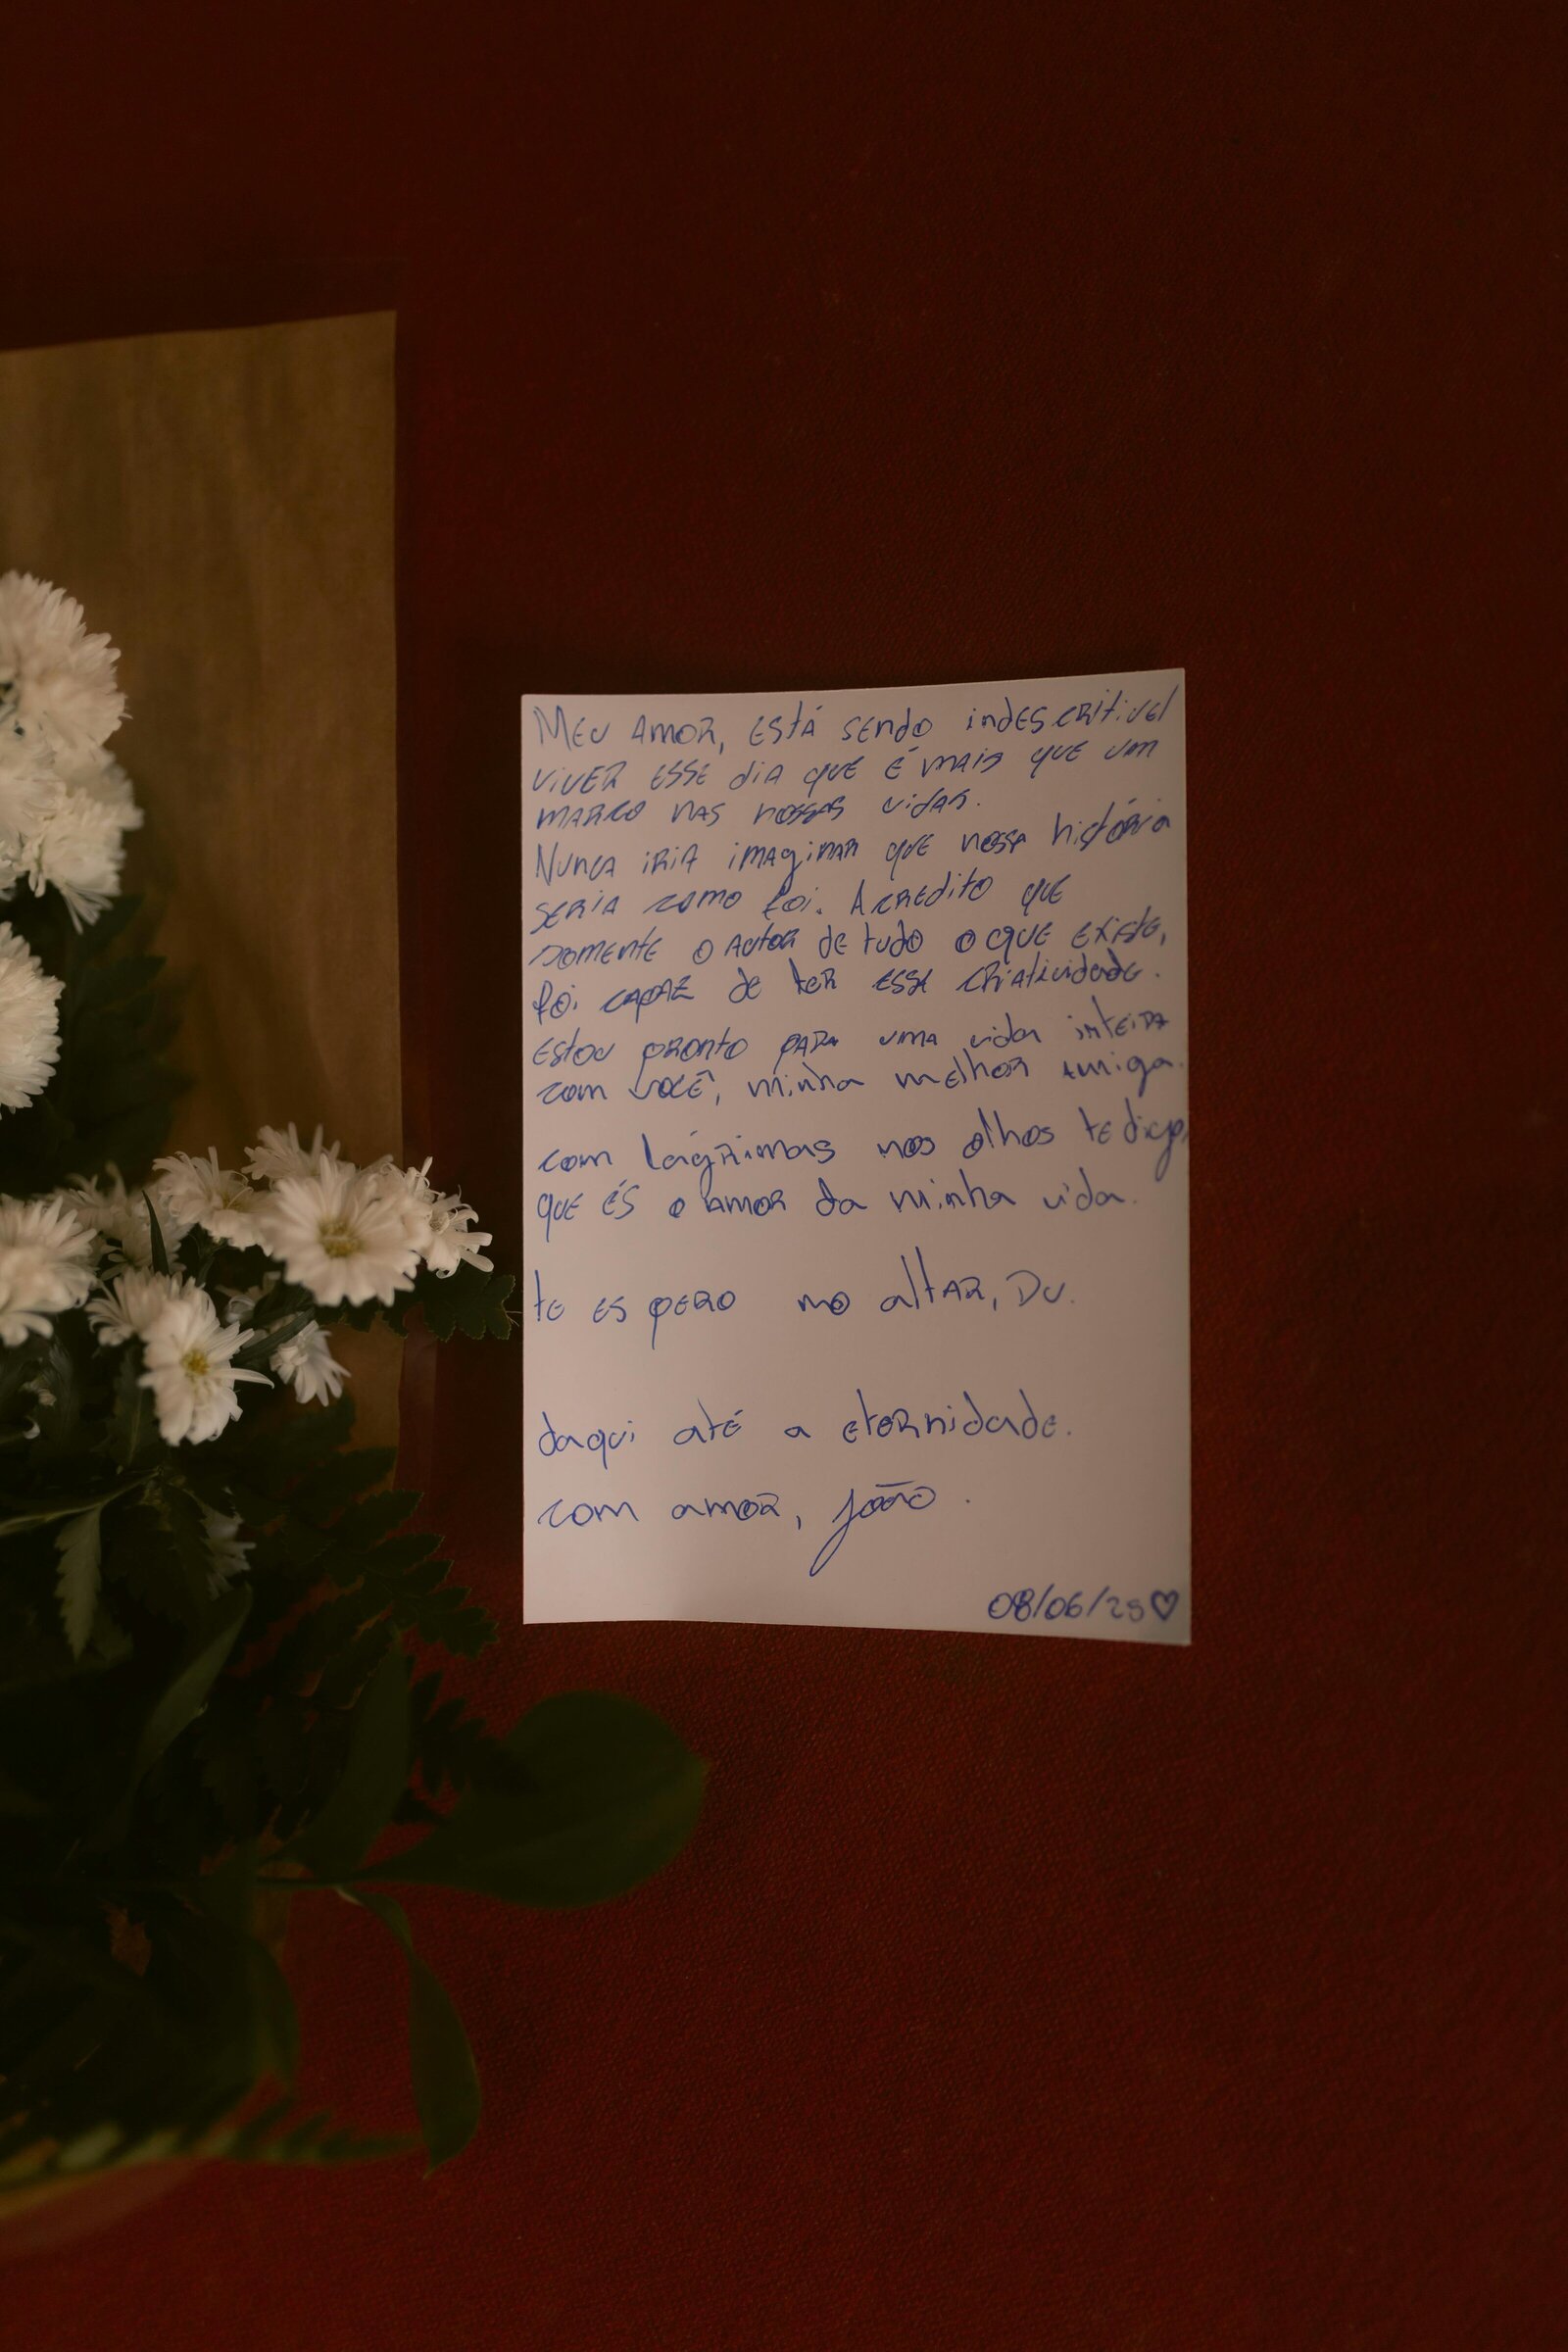 Meu amor, está sendo indescritivel
viver esse dia que é mais que um
marco nas nossas vidas.
Nunca iria imaginar que nossa história
seria como foi. Acredito que
somente o Autor de tudo o que existe,
foi capaz de ter essa criatividade.
Estou pronto para uma vida inteira
com você, minha melhor amiga.
com lágrimas nos olhos te digo,
que és o amor da minha vida.
te espero no altar, Du.
daqui até a eternidade.
com amor, João.
08/06/25♡